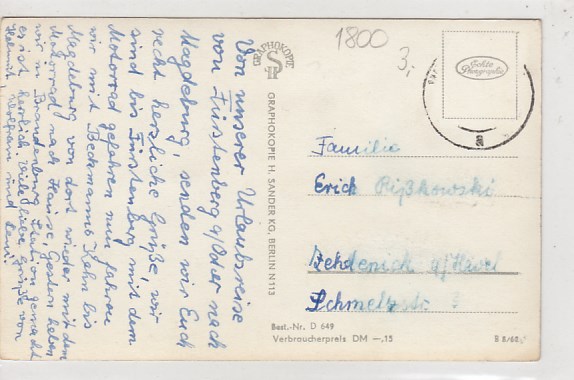 Von unserer Urlaubsreise
von Fürstenberg a/Oder nach
Magdeburg, senden wir Euch
recht herzliche Grüße, wir
sind bis Fürstenberg mit dem
Motorrad gefahren nun fahren
wir mit Beckmanns Kahn bis
Magdeburg von dort wieder mit dem
Motorrad nach Hause. Gestern haben
wir in Brandenburg Station gemacht
es ist herrlich. Viele liebe Grüße von
Helmut und
GRAPHOKOPIE
GRAPHOKOPIE H. SANDER KG, BERLIN N113
1800
3,-
Echte
Photographie
a
Familie
Erich Rißkowski
Zehdenick a/Havel
Schmelzstr.
Best.-Nr. D 649
Verbraucherpreis DM —,15